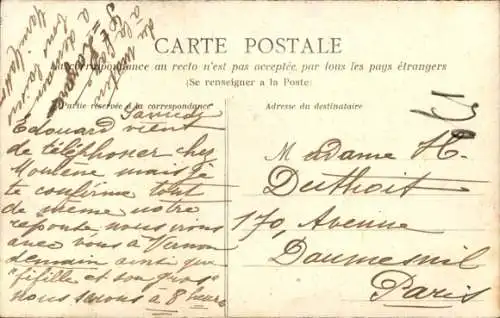 CARTE POSTALE
La correspondance au recto n'est pas acceptée par tous les pays étrangers
(Se renseigner à la Poste)
Partie réservée à la correspondance
Adresse du destinataire
Samedi
Edouard vient
de téléphoner chez
mais je
te confirme tout
de même notre
réponse, nous irons
avec vous à Vernon
demain ainsi que
"fifille et son gros"
nous serons à 8 heures
Madame H.
Duthoit
170, Avenue
Daumesnil
Paris